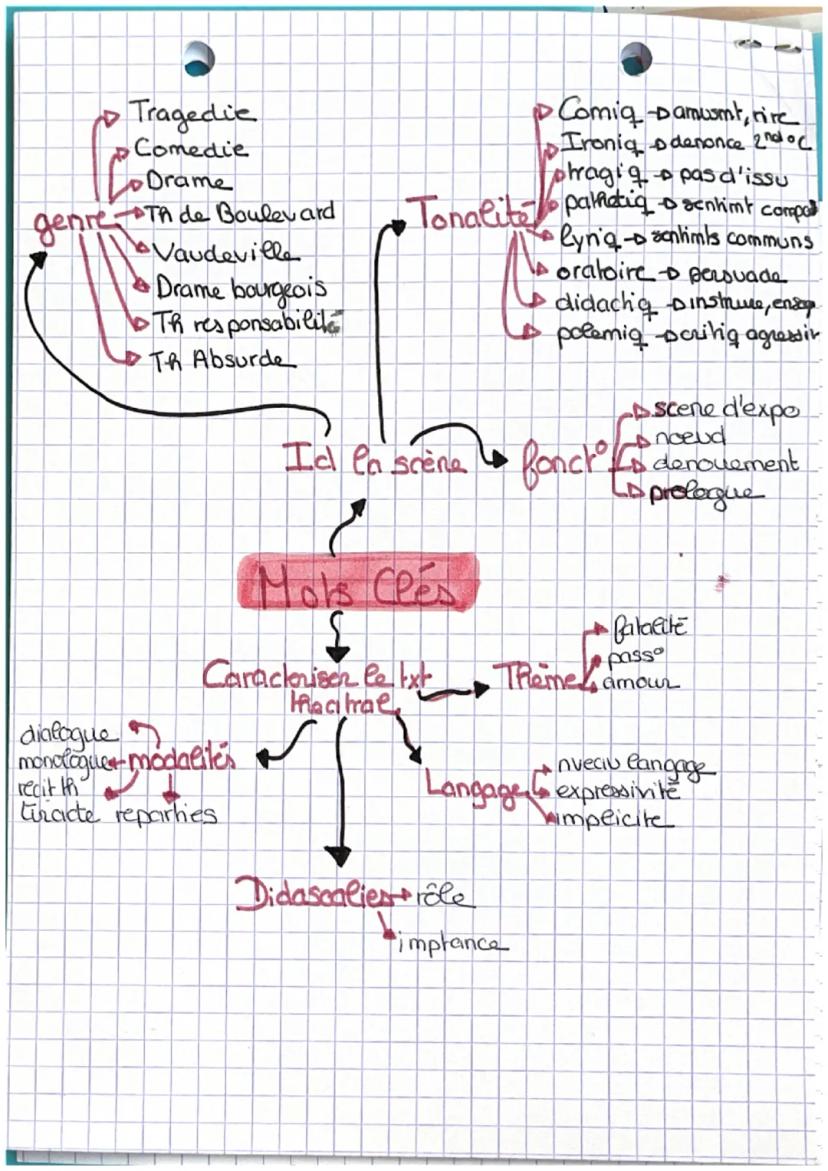 Tragedie
Comedie
Drame
genre
Th de Boulevard
Vaudeville
Drame bourgeois
Th responsabilité
Th Absurde
Tonalité
Comiq → amusmt, rire
Ironiq → denonce 2nd °
tragiq → pas d'issu
pathétiq → sentimt
lyriq → sentimts communs
oratoire → persuade
didactiq → instruire,
polemiq → critiq agressiv
Id la scène
fonct°
scene d'expo
nœud
denouement
prologue
Mots Clés
Caracteriser le txt
theatral
Thème
fatalité
pass°
amour
modalités
dialogue
monologue
récit th
tiracte reparties
Langage
nveau langage
expressivité
implicite
Didascalies → rôle
imptance